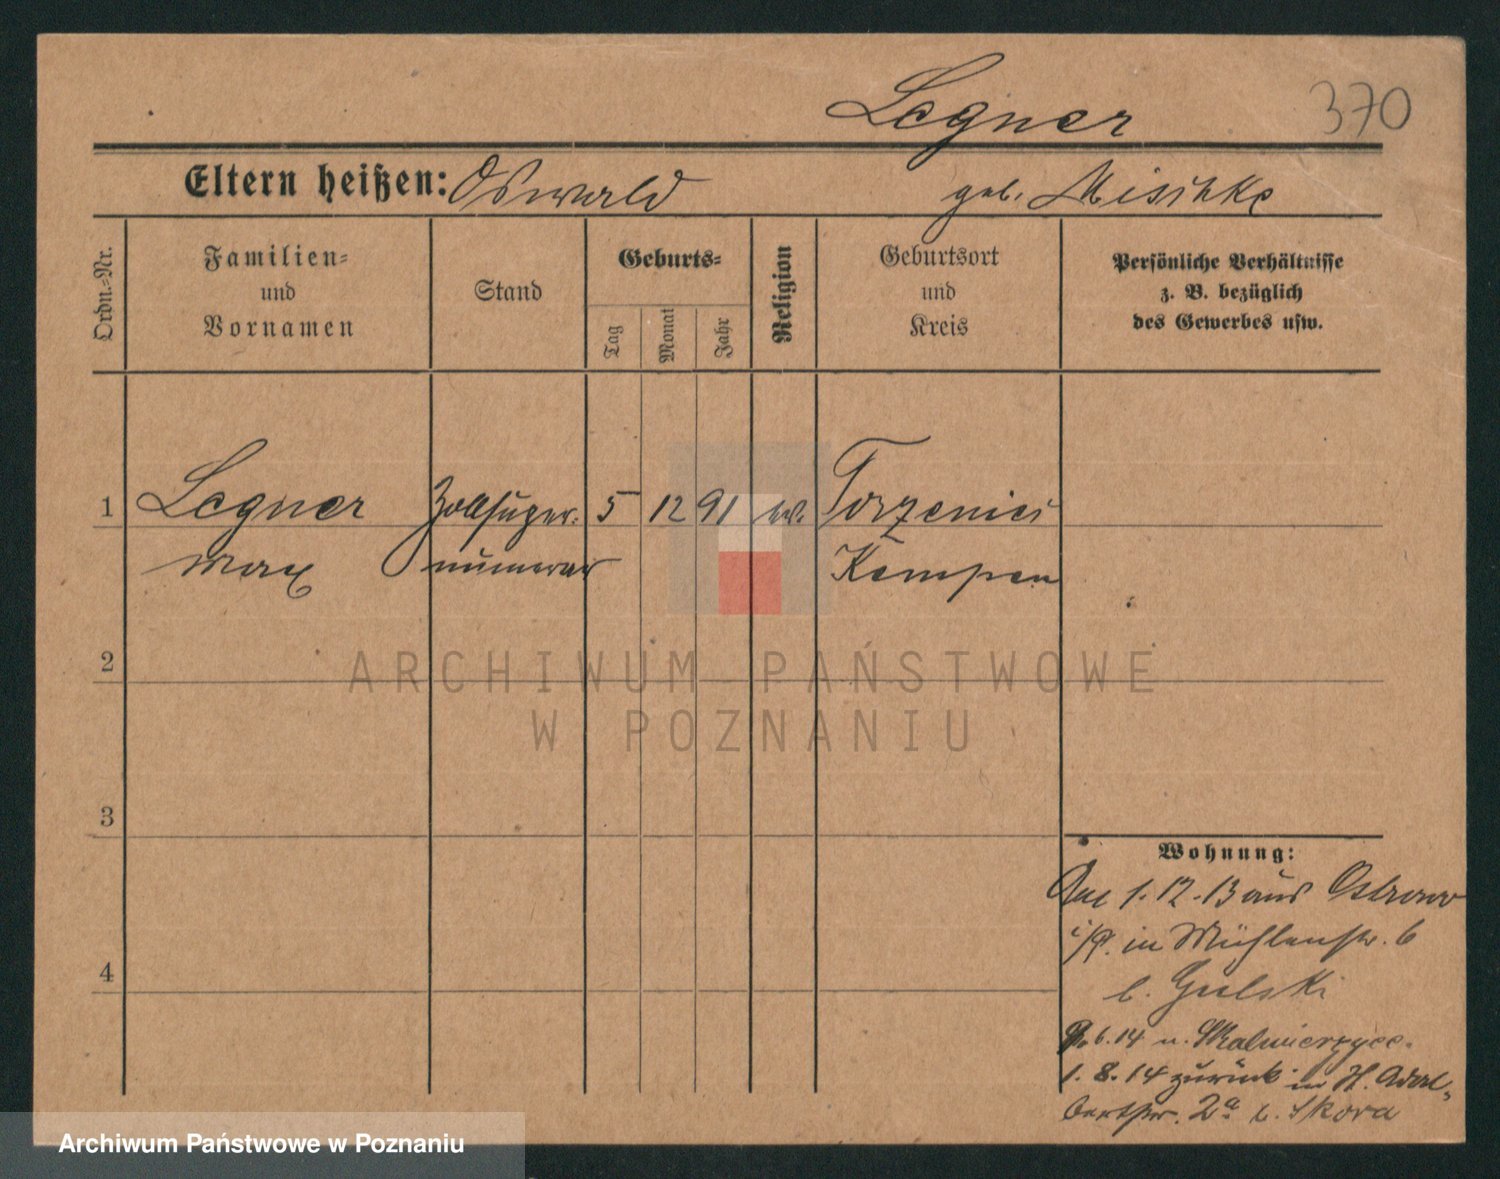 Legner 370
Eltern heißen: Oswald geb. Mischke
Ordn.-Nr.
Familien-
und
Vornamen
Stand
Geburts-
Tag
Monat
Jahr
Religion
Geburtsort
und
Kreis
Persönliche Verhältnisse
z. B. bezüglich
des Gewerbes usw.
1 Legner Zollsuper- 5 12 91 ev. Torzeniec
Max numerar Kempen
2
ARCHIWUM PAŃSTWOWE
W POZNANIU
3
4
Wohnung:
Am 1.12.13 aus Ostrowo
i/P. in Mühlenstr. 6
b. Gulski
6.14 n. Skalmierzyce.
1.8.14 zurück in St. Adal-
bertstr. 2a b. Skora
Archiwum Państwowe w Poznaniu